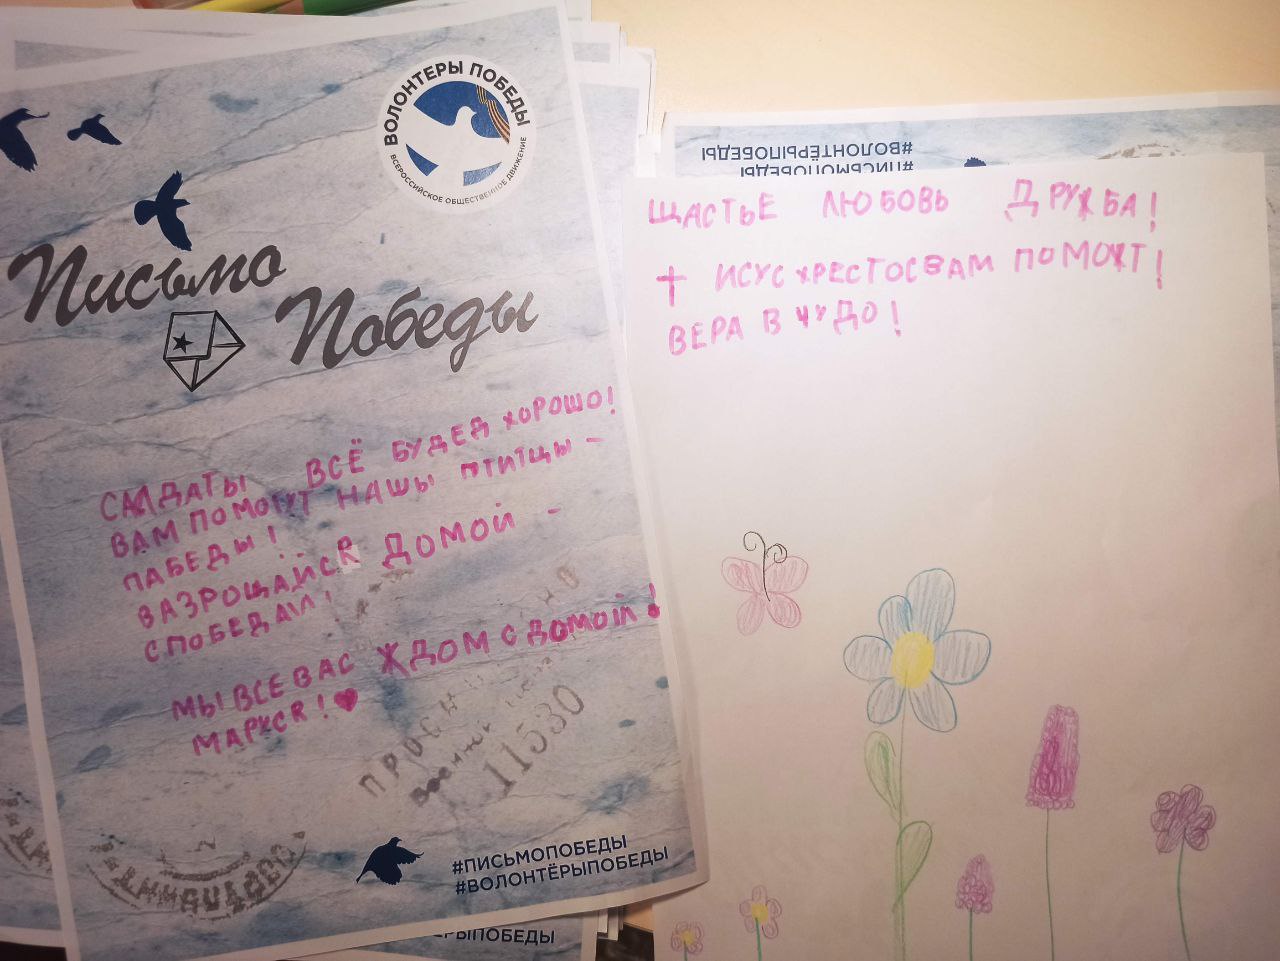 ВОЛОНТЕРЫ ПОБЕДЫ
ВСЕРОССИЙСКОЕ ОБЩЕСТВЕННОЕ ДВИЖЕНИЕ
Письмо
Победы
САЛДАТЫ ВСЁ БУДЕД ХОРОШО!
ВАМ ПОМОГУТ НАШЫ ПТИТЦЫ –
ПАБЕДЫ!
ВАЗРОЩАЙСЯ ДОМОЙ –
СПОБЕДАЙ!
МЫ ВСЕ ВАС ЖДОМ С ДОМОЙ!
МАРКСЯ!
ПРОСМ
военной
11530
#ПИСЬМОПОБЕДЫ
#ВОЛОНТЁРЫПОБЕДЫ
РЫПОБЕДЫ
#ВОЛОНТЁРЫПОБЕДЫ
#ПИСЬМОПОБЕДЫ
ЩАСТЬЕ ЛЮБОВЬ ДРУЖБА!
ИСУС ХРЕСТОС ВАМ ПОМОЖТ!
ВЕРА В ЧУДО!